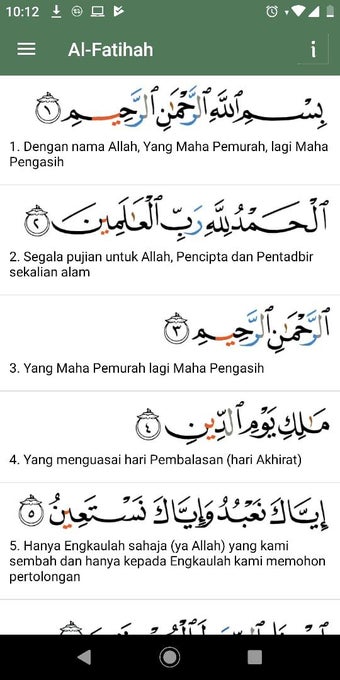 10:12
Al-Fatihah
بِسْمِ ٱللَّهِ ٱلرَّحْمَٰنِ ٱلرَّحِيمِ ١
1. Dengan nama Allah, Yang Maha Pemurah, lagi Maha
Pengasih
ٱلْحَمْدُ لِلَّهِ رَبِّ ٱلْعَٰلَمِينَ ٢
2. Segala pujian untuk Allah, Pencipta dan Pentadbir
sekalian alam
ٱلرَّحْمَٰنِ ٱلرَّحِيمِ ٣
3. Yang Maha Pemurah lagi Maha Pengasih
مَٰلِكِ يَوْمِ ٱلدِّينِ ٤
4. Yang menguasai hari Pembalasan (hari Akhirat)
إِيَّاكَ نَعْبُدُ وَإِيَّاكَ نَسْتَعِينُ ٥
5. Hanya Engkaulah sahaja (ya Allah) yang kami
sembah dan hanya kepada Engkaulah kami memohon
pertolongan